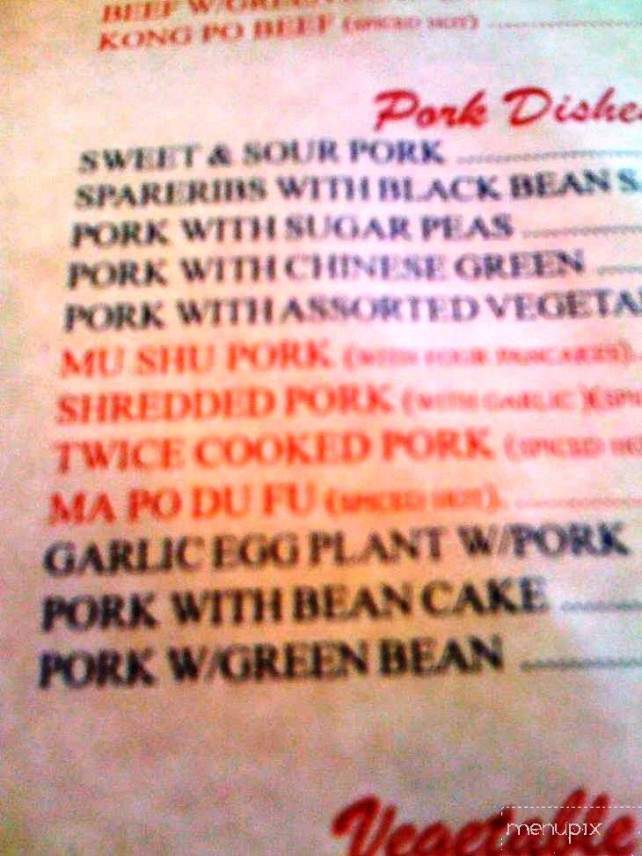 BEEF W/GREEN
KONG PO BEEF (SPICED HOT)
Pork Dishe
SWEET & SOUR PORK
SPARERIBS WITH BLACK BEAN S
PORK WITH SUGAR PEAS
PORK WITH CHINESE GREEN
PORK WITH ASSORTED VEGETA
MU SHU PORK (WITH FOUR PANCAKES)
SHREDDED PORK (WITH GARLIC)(SPI
TWICE COOKED PORK (SPICED HO
MA PO DU FU (SPICED HOT)
GARLIC EGG PLANT W/PORK
PORK WITH BEAN CAKE
PORK W/GREEN BEAN
Vegetable
menupix